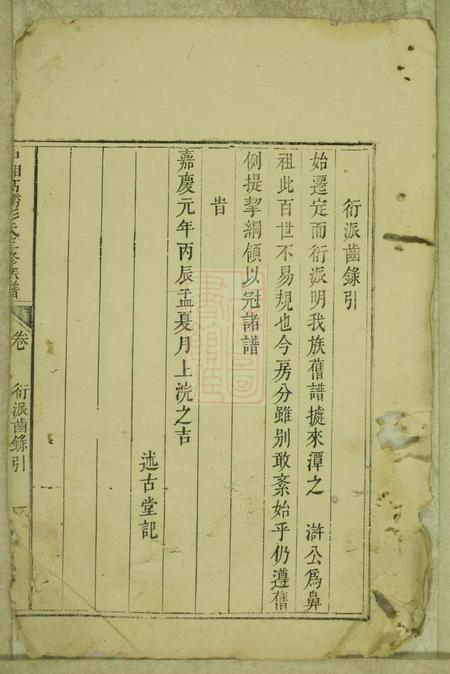 衍派齒錄引
始遷定而衍派明我族舊譜據來潭之 滸公爲鼻
祖此百世不易規也今房分雖别敢紊始乎仍遵舊
例提挈綱領以冠諸譜
旹
嘉慶元年丙辰孟夏月上浣之吉
述古堂記
氏三修族譜
卷
衍派齒錄引